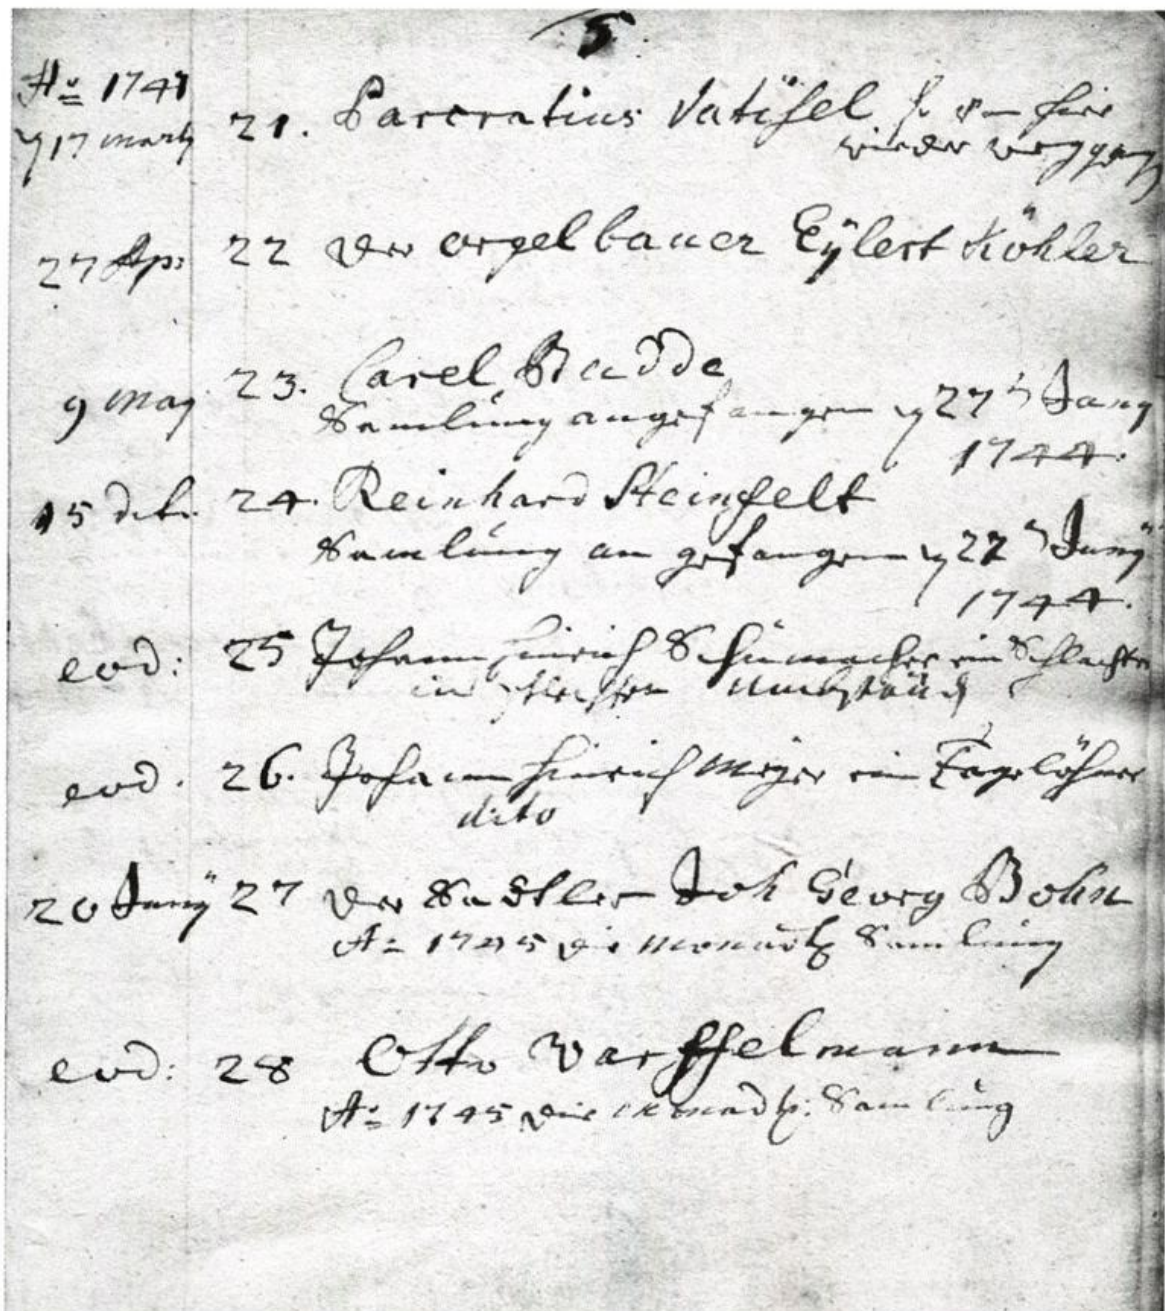 5.
Ao 1741
17 Marty 21. Pancratius Vatihsel so von hier
wieder weggeg
27 Ap: 22 der orgelbauer Eÿlert Köhler
9 May 23. Carel Budde
Samlung angefangen d 27 Juny
1744.
15 dito 24. Reinhard Steinfelt
Samlung an gefangen d 27 Junÿ
1744.
eod: 25 Johann Hinrich Schumacher ein Schlachter
in schlechten Umbständ
eod. 26. Johann Hinrich Meÿer ein Tagelöhner
dito
20 Junÿ 27 der Sadtler Joh Georg Bohn
Ao 1745 die monadtl Samlung
eod: 28 Otto Warffelmann
Ao 1745 die monadtl: Samlung